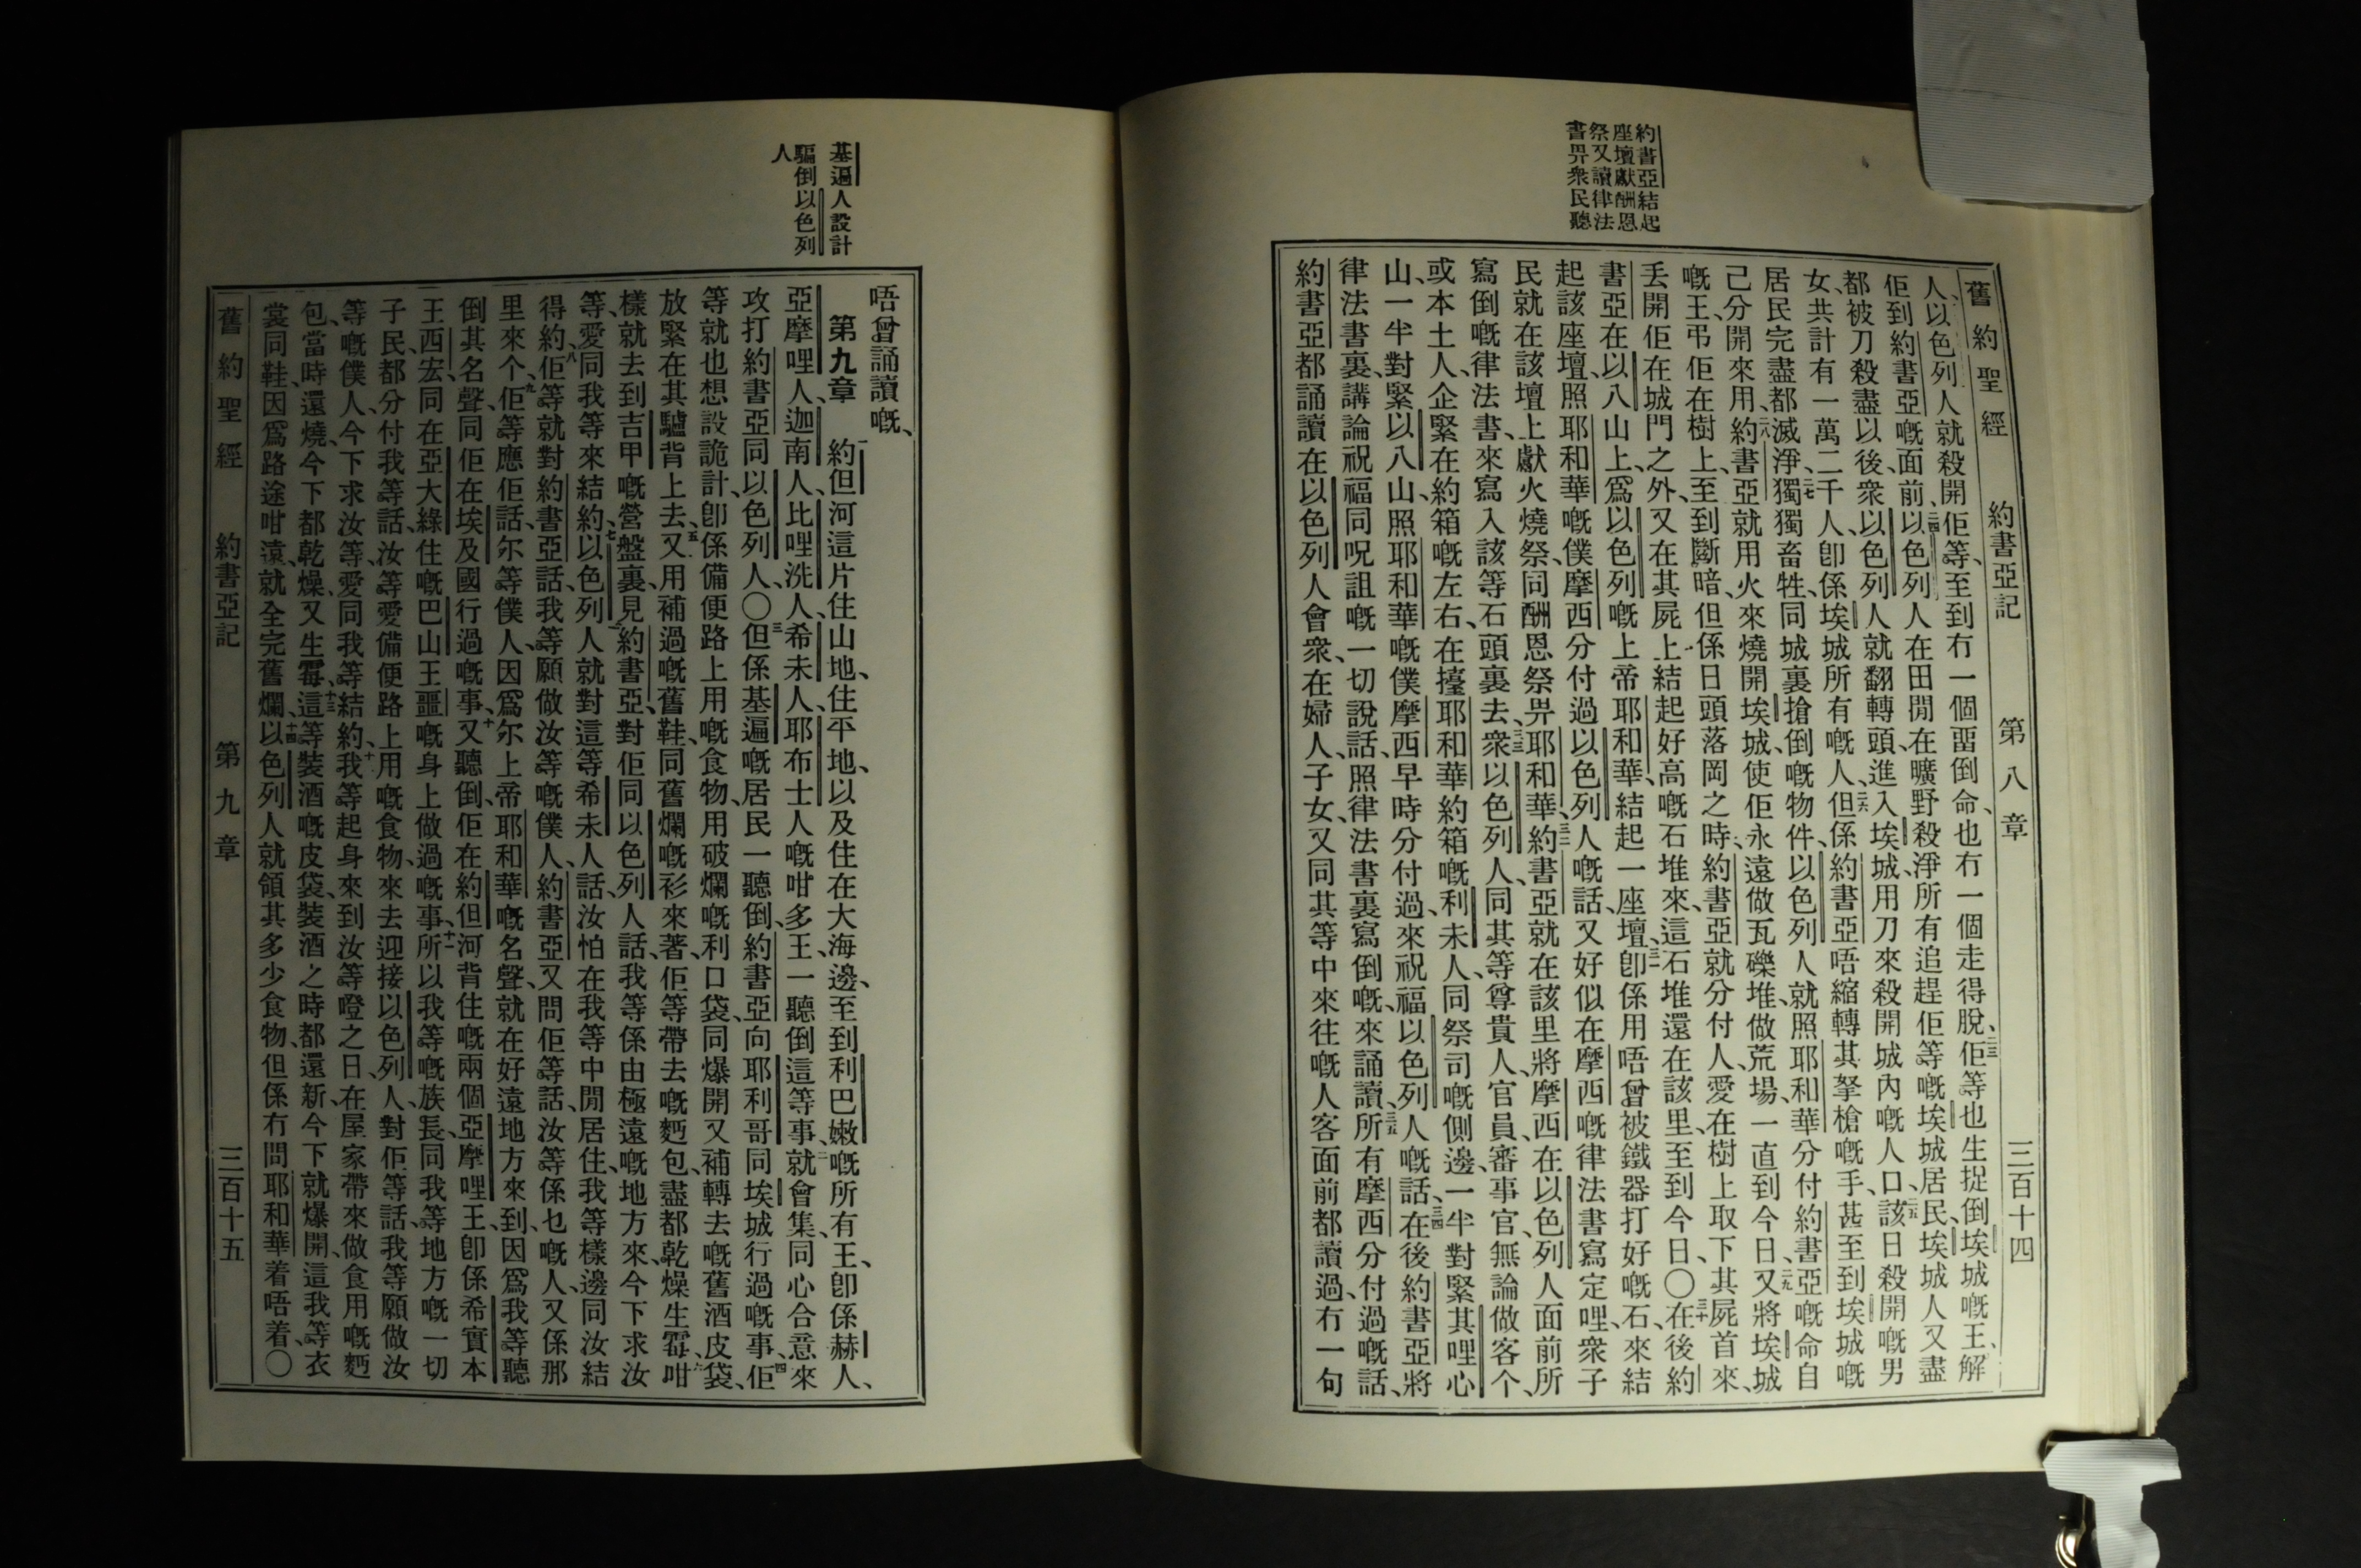 約書亞結起
座壇獻酬恩
祭又讀律法
書畀衆民聽
舊約聖經 約書亞記 第八章 三百十四
人、以色列人就殺開佢等、至到冇一個畱倒命、也冇一個走得脫、二三佢等也生捉倒埃城嘅王、解
佢到約書亞嘅面前、二四以色列人在田閒在曠野殺淨所有追趕佢等嘅埃城居民、埃城人又盡
都被刀殺盡以後、衆以色列人就翻轉頭、進入埃城用刀來殺開城內嘅人口、二五該日殺開嘅男
女、共計有一萬二千人、卽係埃城所有嘅人、二六但係約書亞唔縮轉其拏槍嘅手、甚至到埃城嘅
居民完盡都滅淨、二七獨獨畜牲、同城裏搶倒嘅物件、以色列人就照耶和華分付約書亞嘅命自
己分開來用、二八約書亞就用火來燒開埃城、使佢永遠做瓦礫堆、做荒場、一直到今日、二九又將埃城
嘅王、弔佢在樹上、至到斷暗、但係日頭落岡之時、約書亞就分付人、愛在樹上取下其屍首來、
丟開佢在城門之外、又在其屍上結起好高嘅石堆來、這石堆還在該里、至到今日、〇三十在後約
書亞在以八山上、爲以色列嘅上帝耶和華、結起一座壇、三一卽係用唔曾被鐵器打好嘅石、來結
起該座壇、照耶和華嘅僕摩西分付過以色列人嘅話、又好似在摩西嘅律法書寫定哩、衆子
民就在該壇上獻火燒祭、同酬恩祭畀耶和華、三二約書亞就在該里將摩西在以色列人面前所
寫倒嘅律法書、來寫入該等石頭裏去、三三衆以色列人、同其等尊貴人、官員、審事官、無論做客个、
或本土人、企緊在約箱嘅左右、在擡耶和華約箱嘅利未人、同祭司嘅側邊、一半對緊其哩心
山、一半對緊以八山、照耶和華嘅僕摩西早時分付過、來祝福以色列人嘅話、三四在後約書亞將
律法書裏、講論祝福同呪詛嘅一切說話、照律法書裏寫倒嘅、來誦讀、三五所有摩西分付過嘅話、
約書亞都誦讀在以色列人會衆、在婦人、子女、又同其等中來往嘅人客面前都讀過、冇一句
基遍人設計
騙倒以色列
人
唔曾誦讀嘅、
第九章 一約但河這片住山地、住平地、以及住在大海邊、至到利巴嫩嘅所有王、卽係赫人、
亞摩哩人、迦南人、比哩洗人、希未人、耶布士人嘅咁多王、一聽倒這等事、二就會集、同心合意來
攻打約書亞同以色列人、〇三但係基遍嘅居民一聽倒、約書亞向耶利哥同埃城行過嘅事、四佢
等就也想設詭計、卽係備便路上用嘅食物、用破爛嘅利口袋、同爆開又補轉去嘅舊酒皮袋、
放緊在其驢背上去、五又用補過嘅舊鞋、同舊爛嘅衫來著、佢等帶去嘅麪包、盡都乾燥生霉、六咁
樣就去到吉甲嘅營盤裏、見約書亞、對佢同以色列人話、我等係由極遠嘅地方來、今下求汝
等、愛同我等來結約、七以色列人就對這等希未人話、汝怕在我等中閒居住、我等樣邊同汝結
得約、八佢等就對約書亞話、我等願做汝等嘅僕人、約書亞又問佢等話、汝等係乜嘅人、又係那
里來个、九佢等應佢話、尔等僕人、因爲尔上帝耶和華嘅名聲、就在好遠地方來到、因爲我等聽
倒其名聲、同佢在埃及國行過嘅事、十又聽倒、佢在約但河背住嘅兩個亞摩哩王、卽係希實本
王西宏、同在亞大綠住嘅巴山王噩嘅身上做過嘅事、十一所以我等嘅族長、同我等地方嘅一切
子民、都分付我等話、汝等愛備便路上用嘅食物、來去迎接以色列人、對佢等話、我等願做汝
等嘅僕人、今下求汝等、愛同我等結約、十二我等起身來到汝等噔之日、在屋家帶來做食用嘅麪
包、當時還燒、今下都乾燥、又生霉、十三這等裝酒嘅皮袋、裝酒之時都還新、今下就爆開、這我等衣
裳同鞋、因爲路途咁遠、就全完舊爛、十四以色列人就領其多少食物、但係冇問耶和華着唔着、〇
舊約聖經 約書亞記 第九章 三百十五